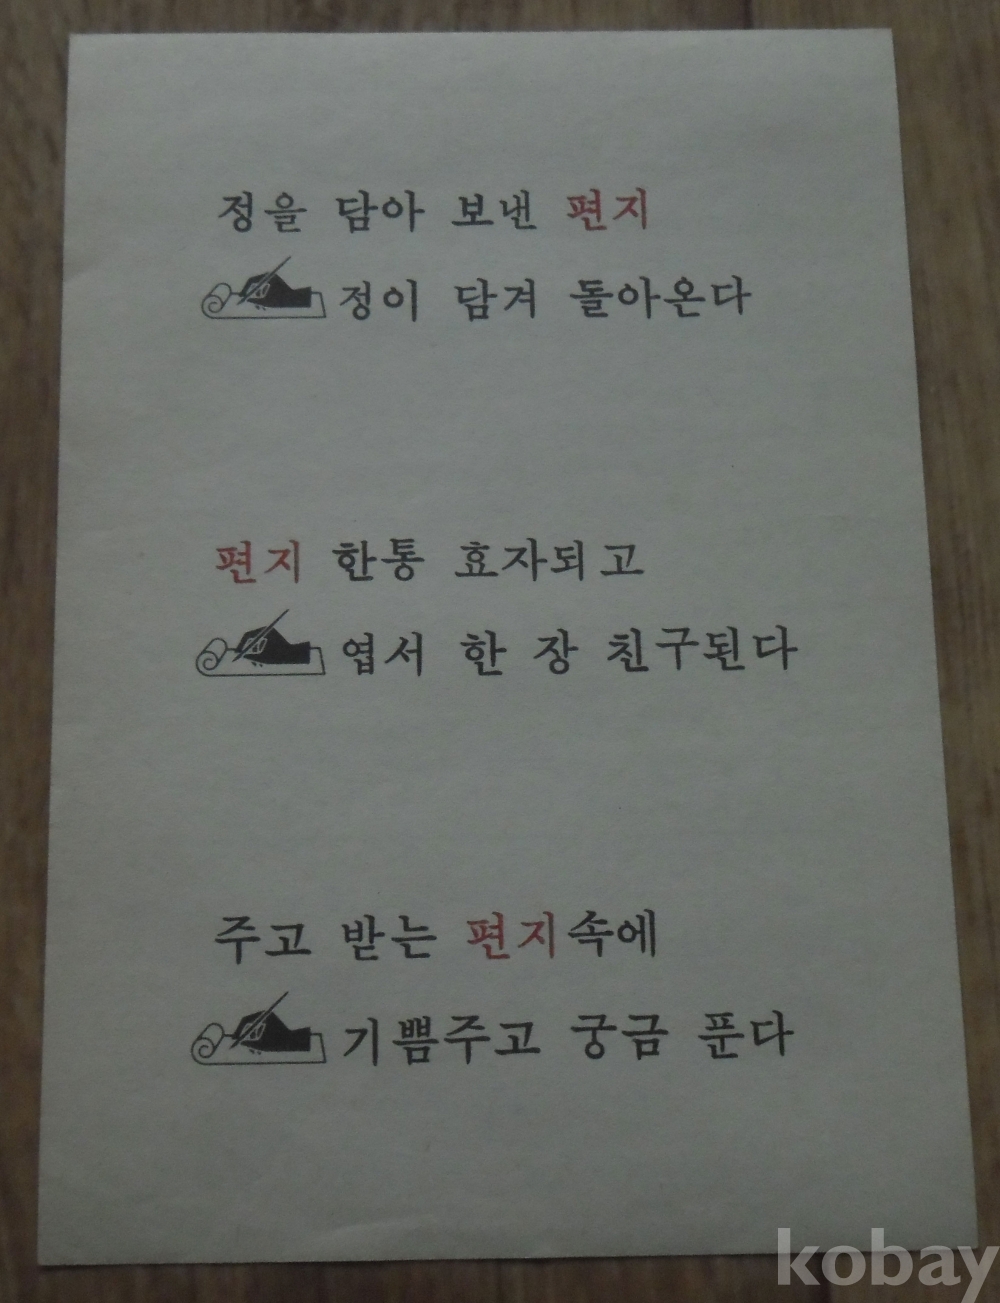 정을 담아 보낸 편지
정이 담겨 돌아온다
편지 한통 효자되고
엽서 한 장 친구된다
주고 받는 편지속에
기쁨주고 궁금 푼다
kobay